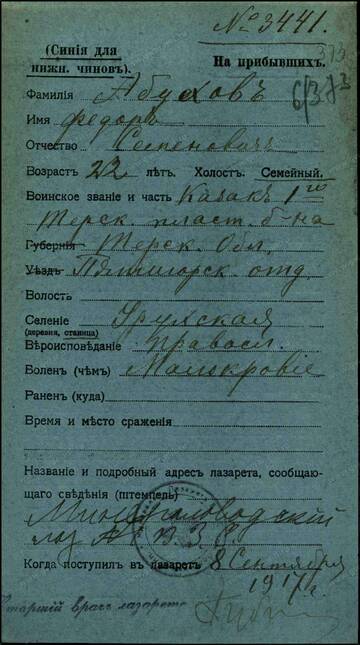 № 3441.
(Синія для
нижн. чиновъ). На прибывшихъ.
Фамилія Абуховъ
Имя Федоръ
Отчество Семеновичъ
Возрастъ 22 лѣтъ. Холост. Семейный.
Воинское званіе и часть Казакъ 1го
Терск. пласт. б-на
Губернія Терск. Обл.
Уѣздъ Пятигорск. отд.
Волость
Селеніе Урухская
(деревня, станица)
Вѣроисповѣданіе правосл.
Воленъ (чѣмъ) Малокровіе
Раненъ (куда)
Время и мѣсто сраженія
Названіе и подробный адресъ лазарета, сообщаю-
щаго свѣдѣнія (штемпель)
Минераловодскій
лаз. В.З.С.
Когда поступилъ въ лазаретъ 8 Сентября
1917 г.
Старшій врачъ лазарета